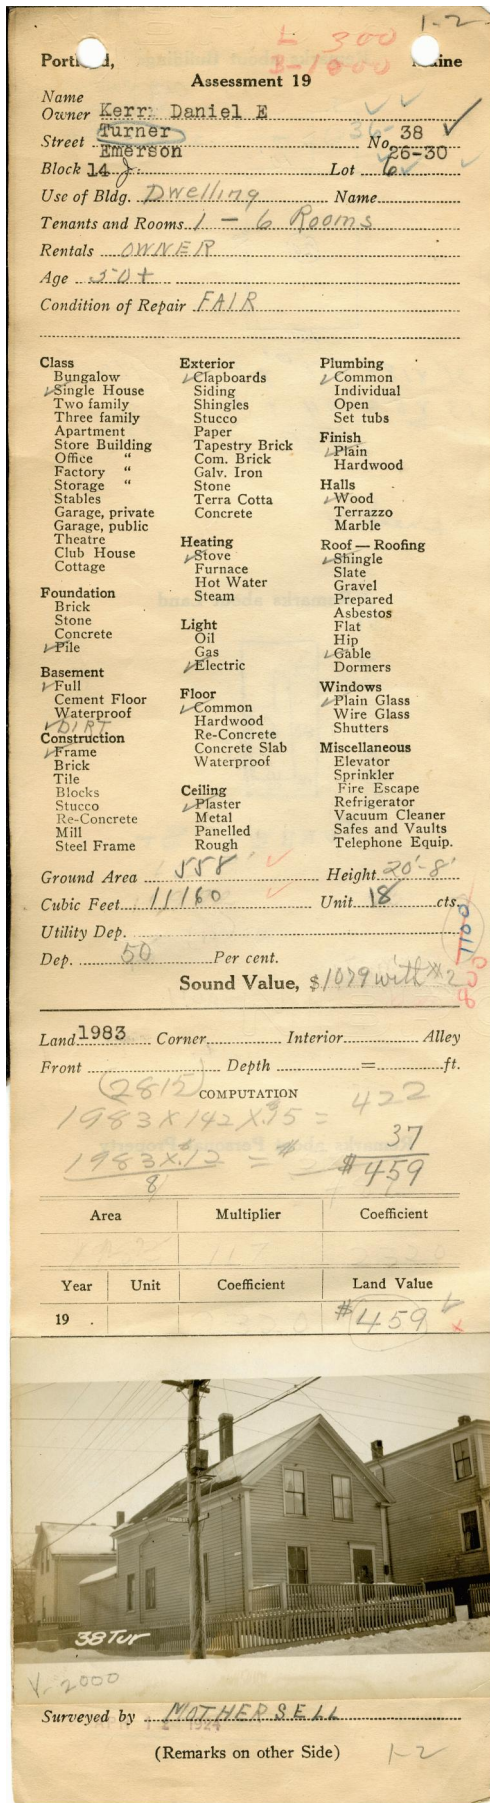 1-2-
L 300
B-1000
Portland, Maine
Assessment 19
Name
Owner Kerr Daniel E
Turner 36- 38
Street No.
Emerson 26-30
Block 14 J Lot 6
Use of Bldg. Dwelling Name
Tenants and Rooms 1 - 6 Rooms
Rentals OWNER
Age 50+
Condition of Repair FAIR
Class
Bungalow
✓Single House
Two family
Three family
Apartment
Store Building
Office "
Factory "
Storage "
Stables
Garage, private
Garage, public
Theatre
Club House
Cottage
Foundation
Brick
Stone
Concrete
✓Pile
Basement
✓Full
Cement Floor
Waterproof
✓DIRT
Construction
✓Frame
Brick
Tile
Blocks
Stucco
Re-Concrete
Mill
Steel Frame
Exterior
✓Clapboards
Siding
Shingles
Stucco
Paper
Tapestry Brick
Com. Brick
Galv. Iron
Stone
Terra Cotta
Concrete
Heating
✓Stove
Furnace
Hot Water
Steam
Light
Oil
Gas
✓Electric
Floor
✓Common
Hardwood
Re-Concrete
Concrete Slab
Waterproof
Ceiling
✓Plaster
Metal
Panelled
Rough
Plumbing
✓Common
Individual
Open
Set tubs
Finish
✓Plain
Hardwood
Halls
✓Wood
Terrazzo
Marble
Roof — Roofing
✓Shingle
Slate
Gravel
Prepared
Asbestos
Flat
Hip
✓Gable
Dormers
Windows
✓Plain Glass
Wire Glass
Shutters
Miscellaneous
Elevator
Sprinkler
Fire Escape
Refrigerator
Vacuum Cleaner
Safes and Vaults
Telephone Equip.
Ground Area 558' Height 20'-8'
Cubic Feet 11160 Unit 18 cts.
Utility Dep.
Dep. 50 Per cent.
1100
800
Sound Value, $1079 with #2
Land 1983 Corner Interior Alley
Front Depth = ft.
(2815) COMPUTATION
1983 X 142 X .15 = 422
37
1983 X .12 = $
8
$459
Area Multiplier Coefficient
Year Unit Coefficient Land Value
19 . $459
38 Tur
V-2000
Surveyed by MOTHERSELL
1924
(Remarks on other Side) 1-2